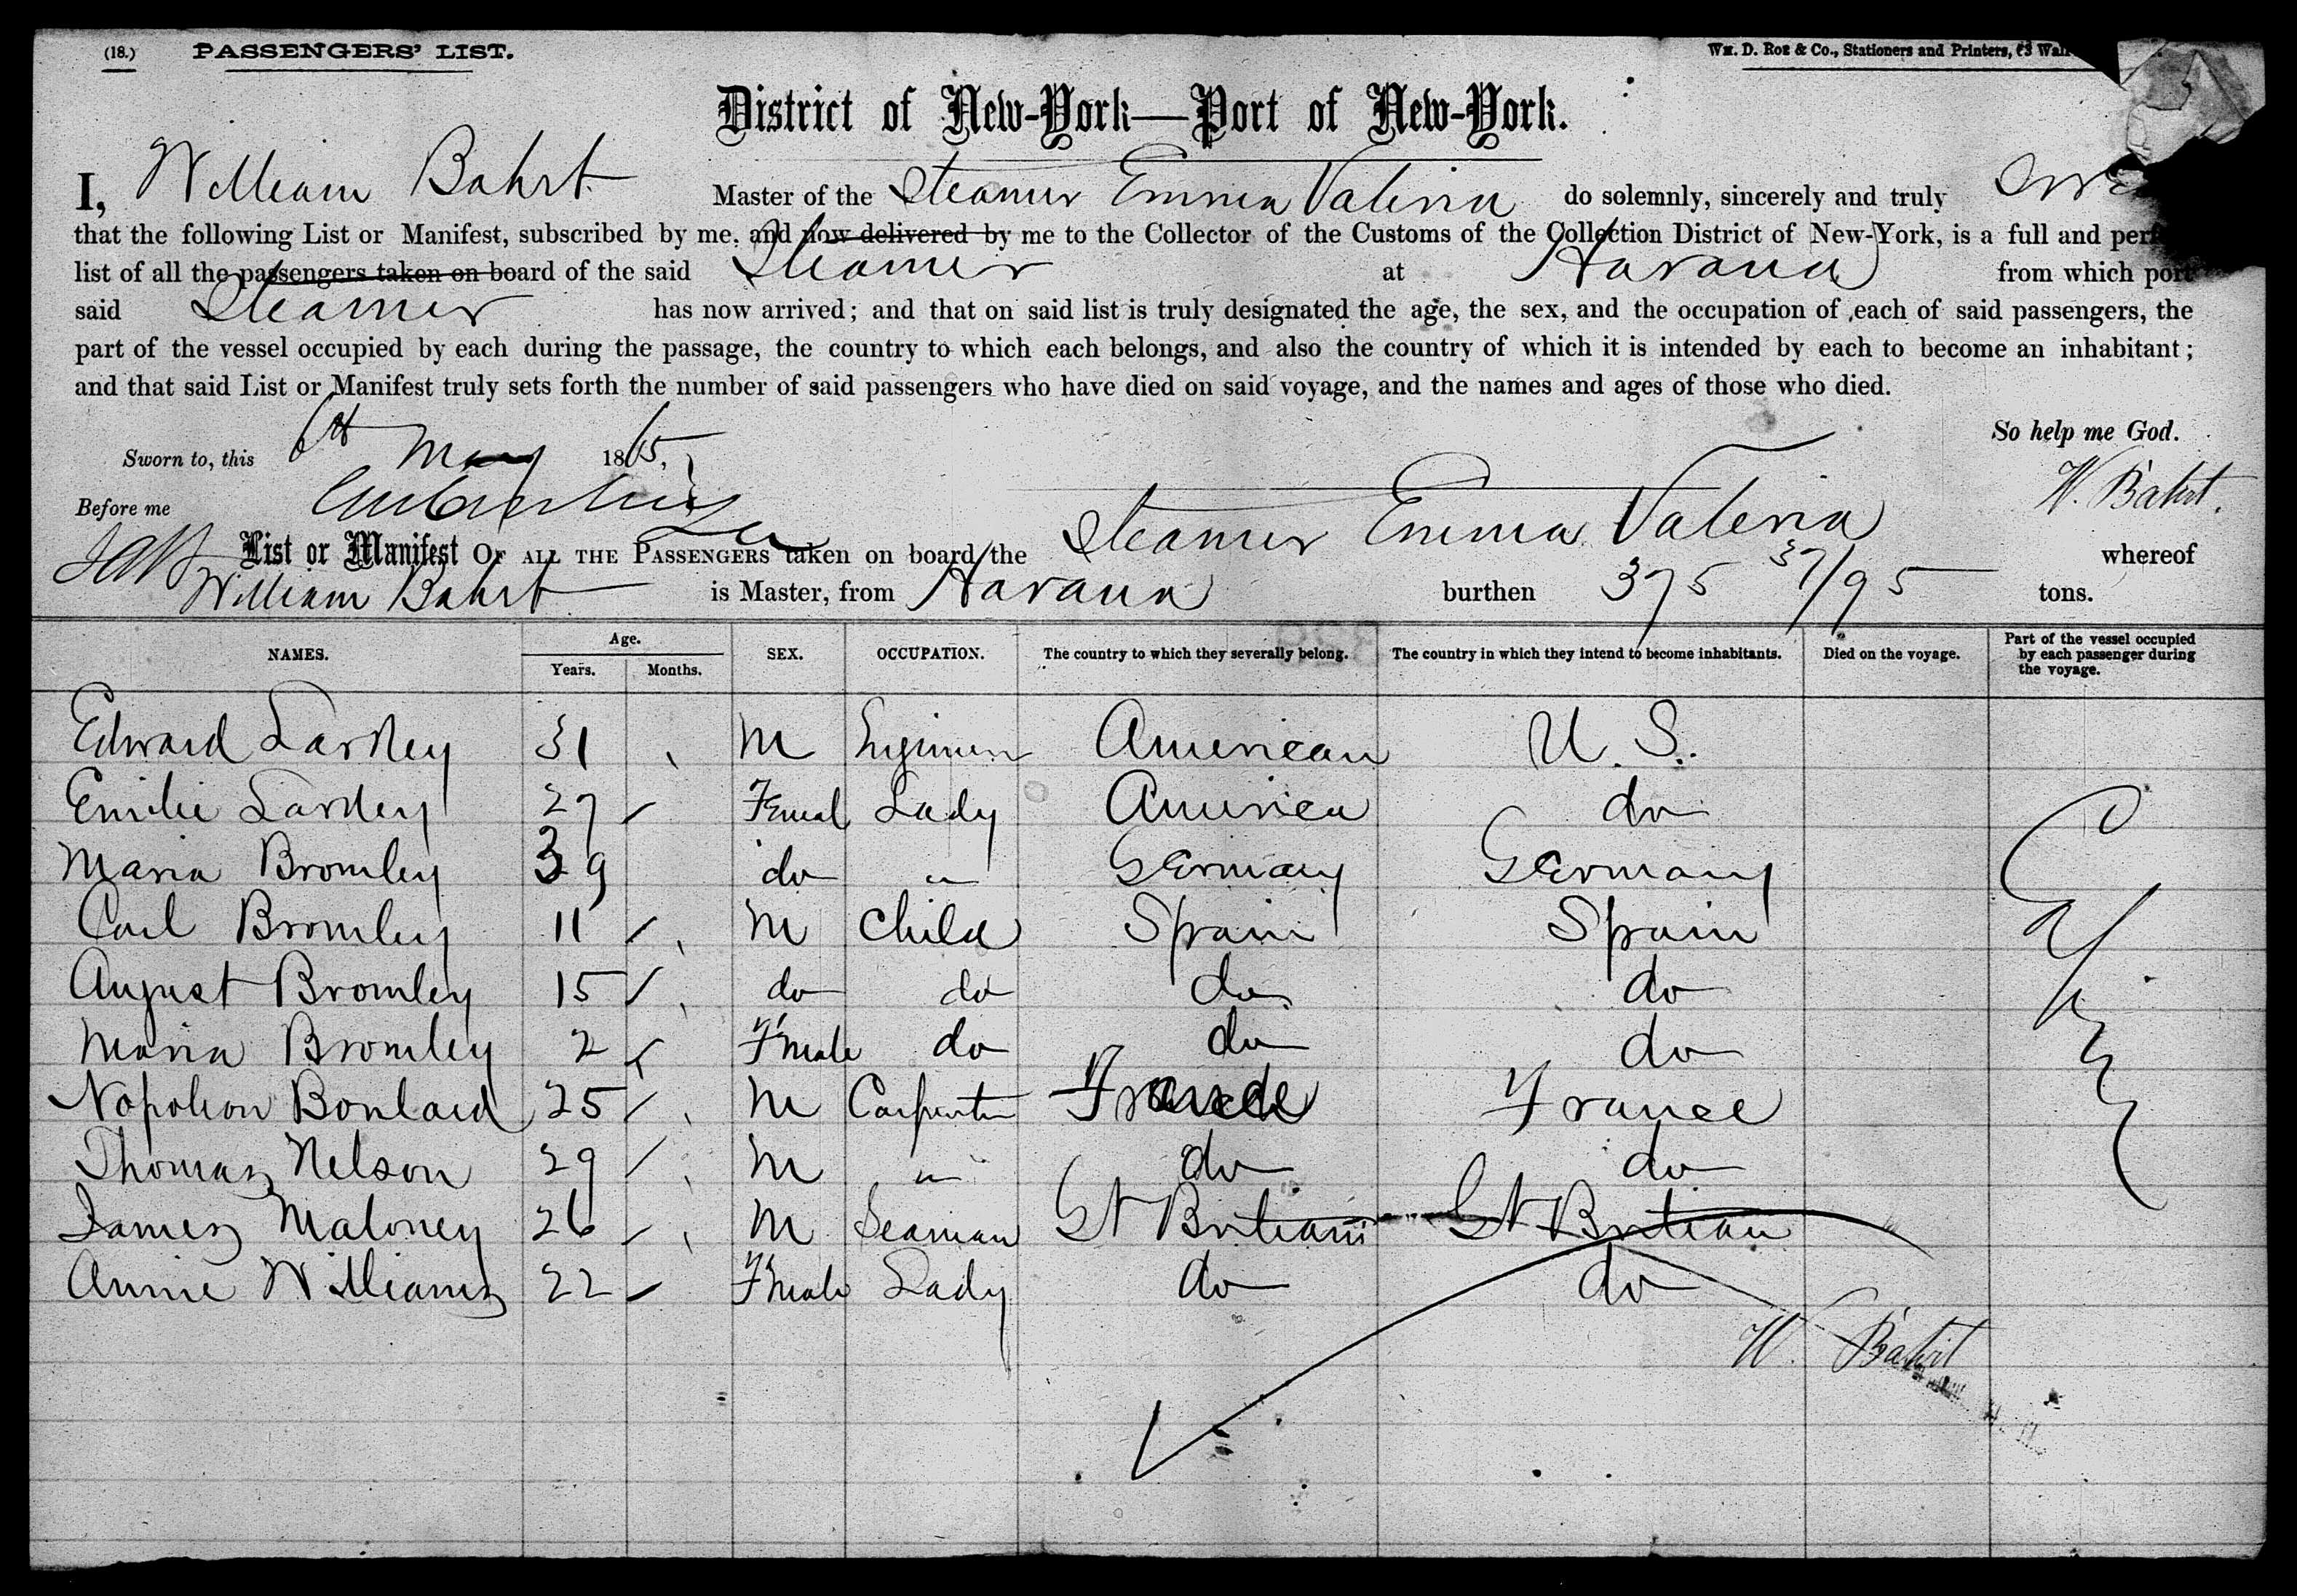 (18.) PASSENGERS' LIST.
Wm. D. Roe & Co., Stationers and Printers, 63 Wall
District of New-York—Port of New-York.
I, William Bahrt Master of the Steamer Emma Valeria do solemnly, sincerely and truly
that the following List or Manifest, subscribed by me, and now delivered by me to the Collector of the Customs of the Collection District of New-York, is a full and perf
list of all the passengers taken on board of the said Steamer at Havana from which port
said Steamer has now arrived; and that on said list is truly designated the age, the sex, and the occupation of each of said passengers, the
part of the vessel occupied by each during the passage, the country to which each belongs, and also the country of which it is intended by each to become an inhabitant;
and that said List or Manifest truly sets forth the number of said passengers who have died on said voyage, and the names and ages of those who died.
So help me God.
Sworn to, this 6th May 1865,
W. Bahrt.
Before me
List or Manifest OF ALL THE PASSENGERS taken on board the Steamer Emma Valeria whereof
William Bahrt is Master, from Havana burthen 375 37/95 tons.
NAMES. Age. Years. Months. SEX. OCCUPATION. The country to which they severally belong. The country in which they intend to become inhabitants. Died on the voyage. Part of the vessel occupied by each passenger during the voyage.
Edward 31 M American U. S.
Emilie 27 Femal Lady America do
Maria Bromley 39 do " Germany Germany
Carl Bromley 11 M Child Spain Spain
August Bromley 15 do do do do
Maria Bromley 2 Fmale do do do
Napoleon 25 M Carpenter France France
Thomas Nelson 29 M " do do
James Maloney 26 M Seaman Gt Britiani Gt Britian
Annie Williams 22 Fmale Lady do do
Cabin
W. Bahrt